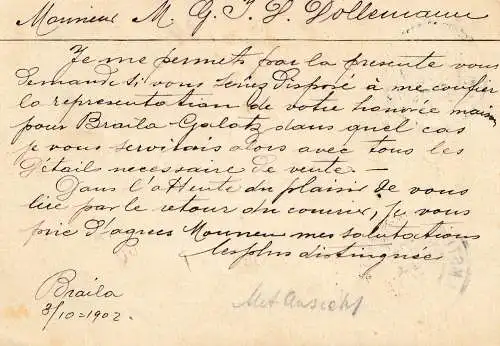 Monsieur M. G. J. D. Dollemann
Je me permets par la presente vous
demande si vous seriez disposé à me confier
la representation de votre honorée maison
pour Braila-Galatz dans quel cas
je vous servirais alors avec tous les
détails necessaire de vente. —
Dans l'attente du plaisir de vous
lire par le retour du courier, je vous
prie d'agrees Monsieur mes salutations
les plus distinguée
Braila
8/10=1902.
Met Ansicht